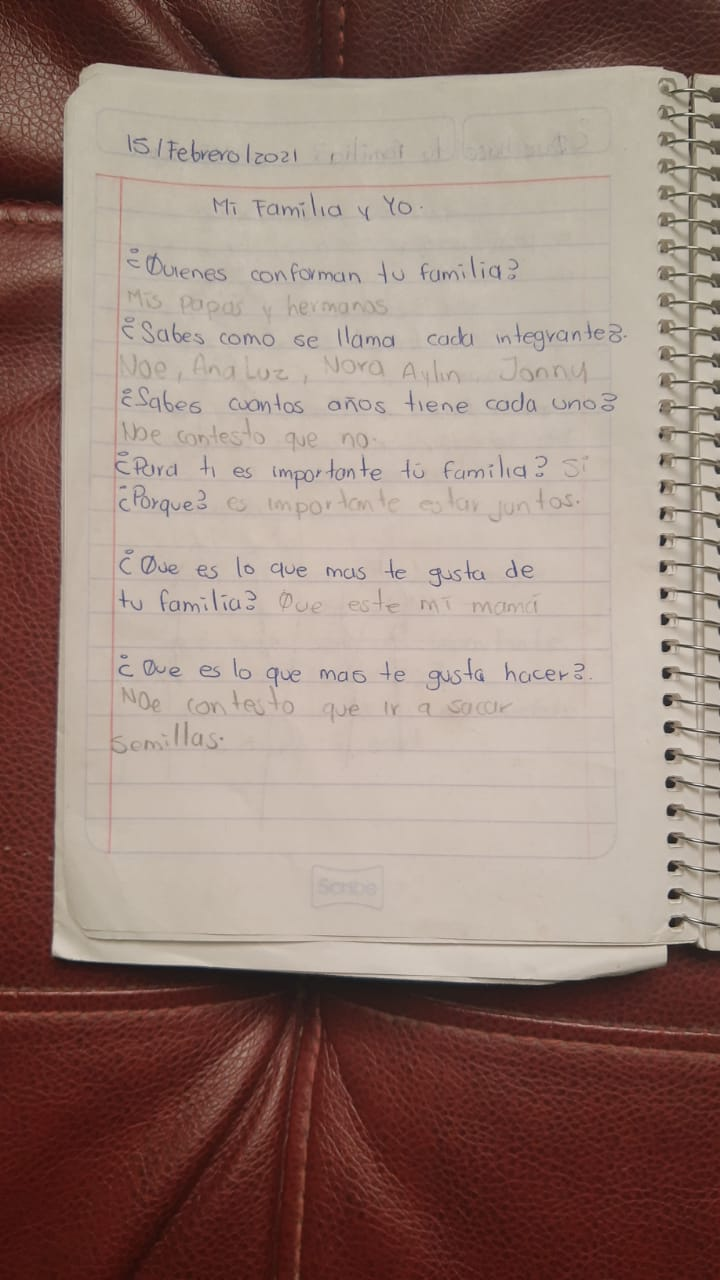 15/Febrero/2021
Mi Familia y Yo.
¿Quienes conforman tu familia?
Mis papas y hermanos
¿Sabes como se llama cada integrante?.
Noe, Ana Luz, Nora Aylin, Jonny
¿Sabes cuantos años tiene cada uno?
Noe contesto que no.
¿Para ti es importante tú familia? Si
¿Porque? es importante estar juntos.
¿Que es lo que mas te gusta de
tu familia? Que este mi mamá
¿Que es lo que mas te gusta hacer?.
Noe contesto que ir a sacar
semillas.
Scribe